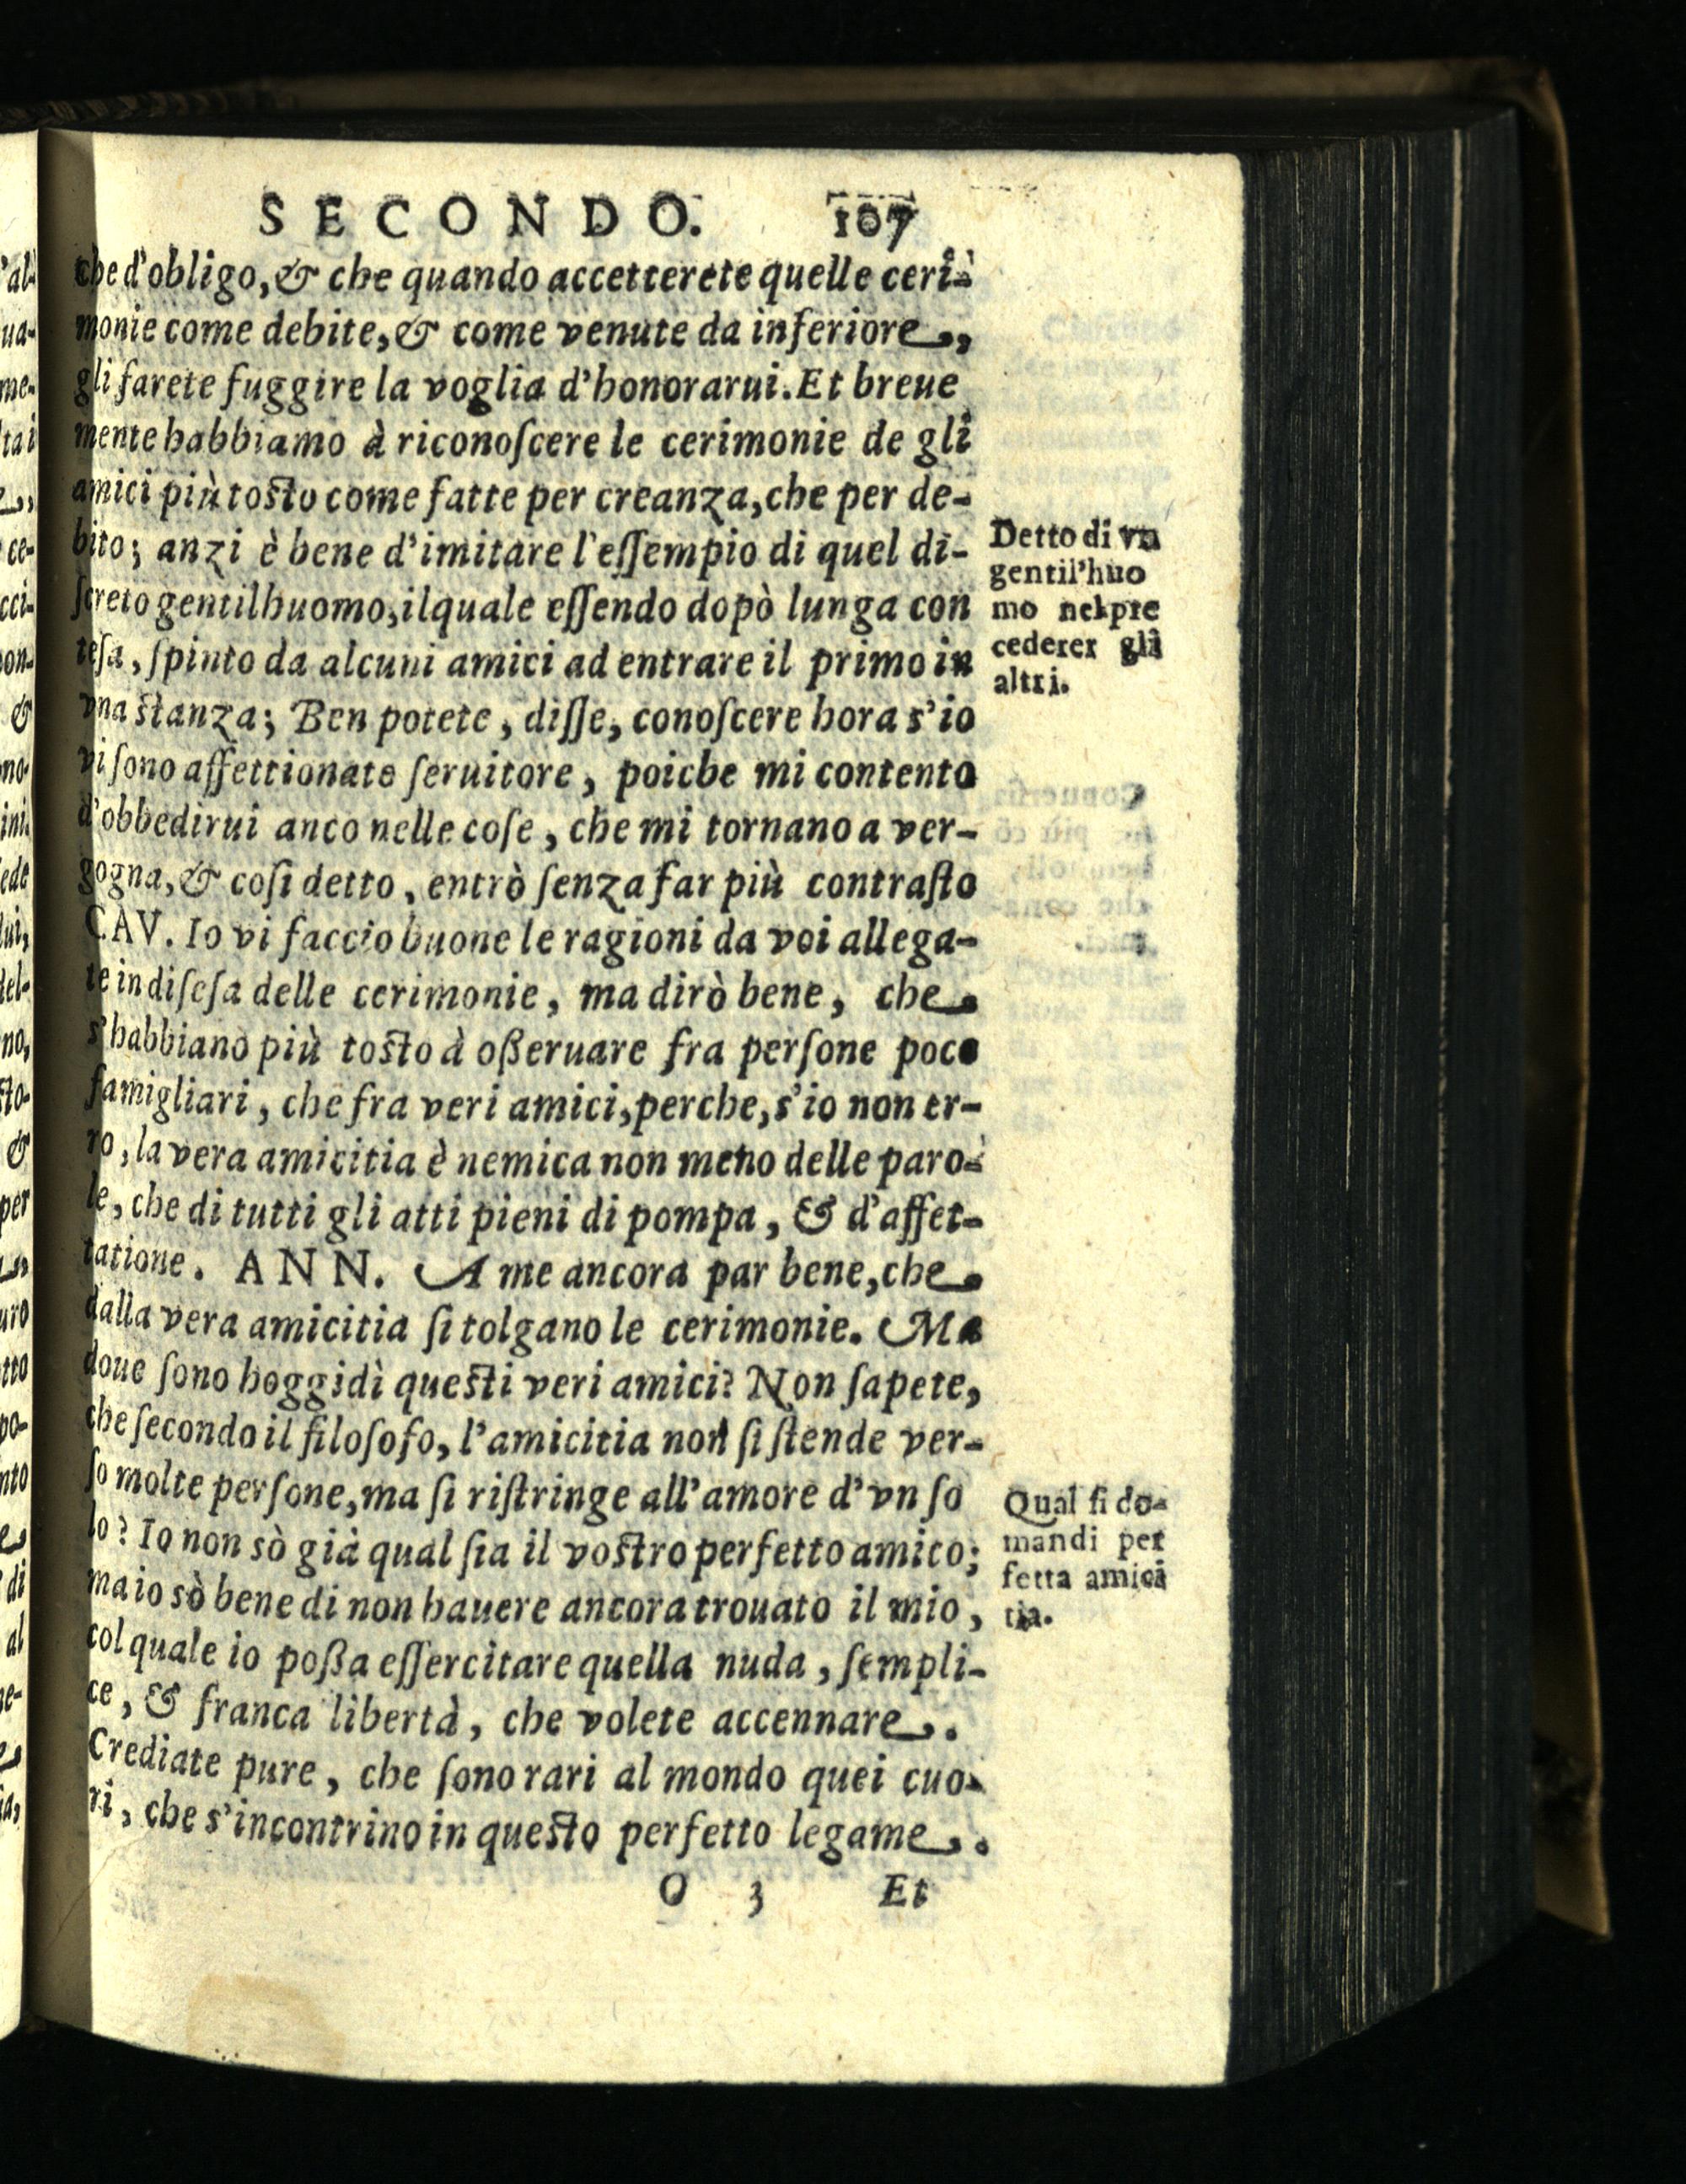 SECONDO. 107
che d'obligo, & che quando accetterete quelle ceri-
monie come debite, & come venute da inferiore,
gli farete fuggire la voglia d'honorarui. Et breue
mente habbiamo à riconoſcere le cerimonie de gli
amici più toſto come fatte per creanza, che per de-
bito; anzi è bene d'imitare l'eſſempio di quel di-
ſcreto gentilhuomo, ilquale eſſendo dopò lunga con
teſa, ſpinto da alcuni amici ad entrare il primo in
vna ſtanza; Ben potete, diſſe, conoſcere hora s'io
vi ſono affettionato ſeruitore, poiche mi contento
d'obbedirui anco nelle coſe, che mi tornano a ver-
gogna, & coſi detto, entrò ſenza far più contraſto
CAV. Io vi faccio buone le ragioni da voi allega-
te in difeſa delle cerimonie, ma dirò bene, che
s'habbiano più toſto à oßeruare fra perſone poco
famigliari, che fra veri amici, perche, s'io non er-
ro, la vera amicitia è nemica non meno delle paro-
le, che di tutti gli atti pieni di pompa, & d'affet-
tatione. ANN. A me ancora par bene, che
dalla vera amicitia ſi tolgano le cerimonie. Ma
doue ſono hoggidì queſti veri amici? Non ſapete,
che ſecondo il filoſofo, l'amicitia non ſi ſtende ver-
ſo molte perſone, ma ſi riſtringe all'amore d'vn ſo
lo? Io non sò già qual ſia il voſtro perfetto amico;
ma io sò bene di non hauere ancora trouato il mio,
col quale io poßa eſſercitare quella nuda, ſempli-
ce, & franca libertà, che volete accennare.
Crediate pure, che ſono rari al mondo quei cuo-
ri, che s'incontrino in queſto perfetto legame.
O 3 Et
Detto di vn
gentil'huo
mo nel pre
cederer gli
altri.
Qual ſi do-
mandi per
fetta amici
tia.